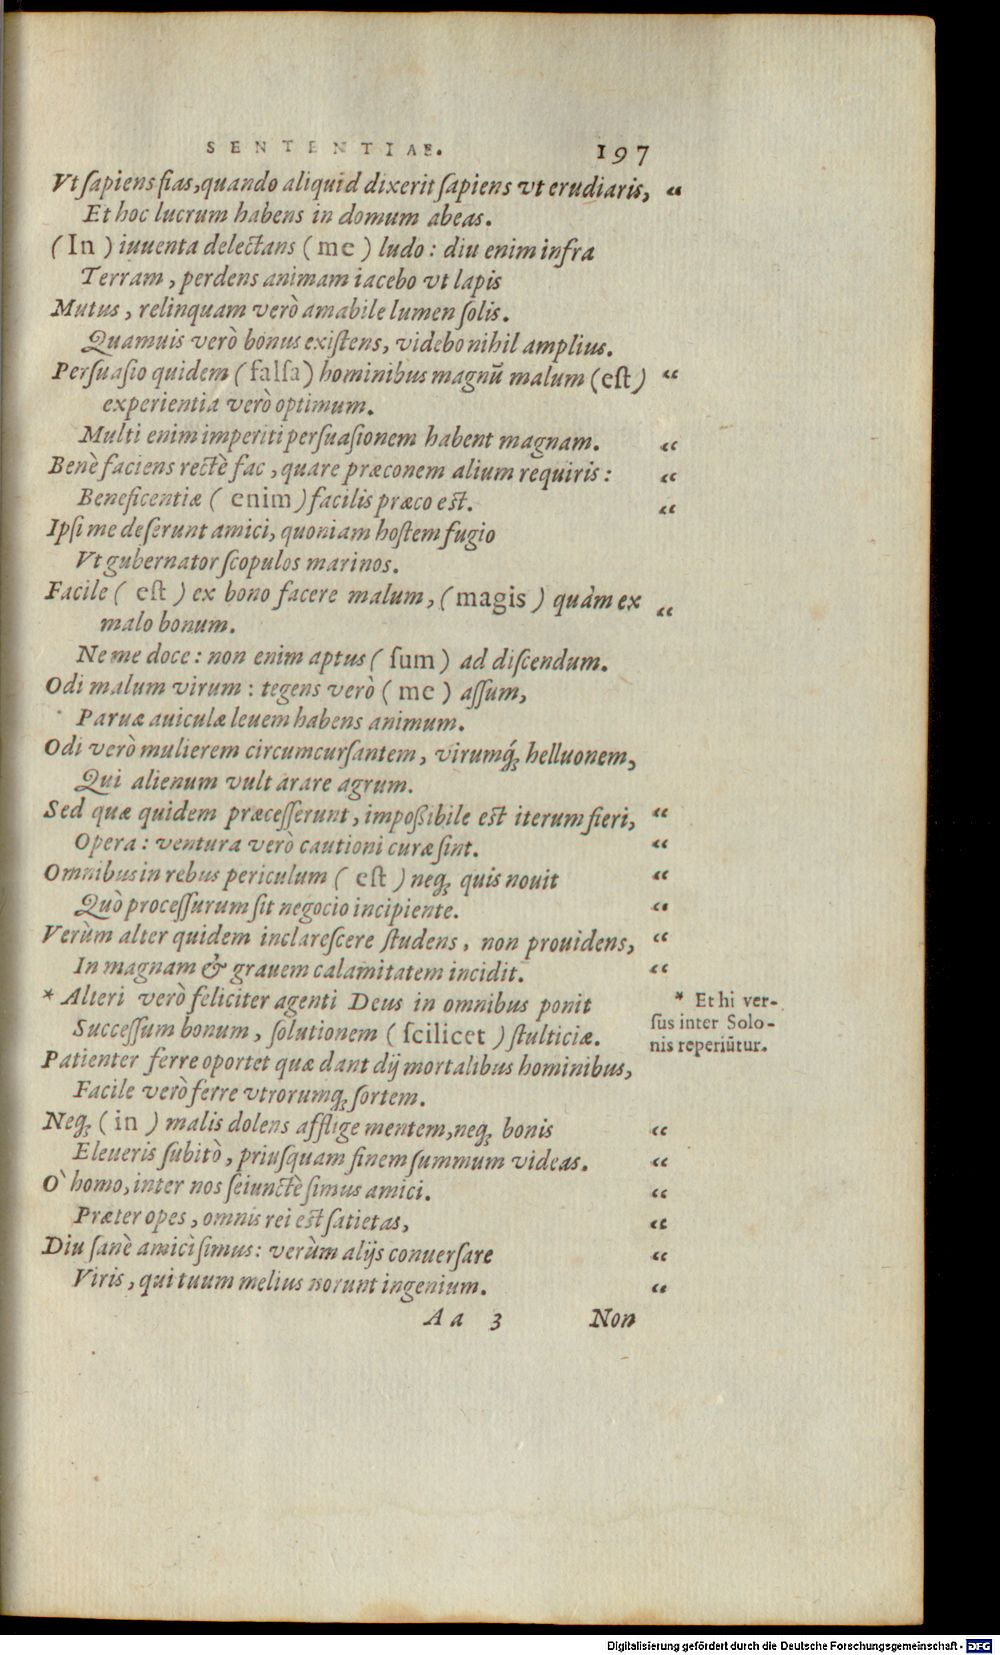 SENTENTIAE. 197
Vt ſapiens fias, quando aliquid dixerit ſapiens vt erudiaris, “
Et hoc lucrum habens in domum abeas.
(In) iuuenta delectans (me) ludo: diu enim infra
Terram, perdens animam iacebo vt lapis
Mutus, relinquam verò amabile lumen ſolis.
Quamuis verò bonus exiſtens, videbo nihil amplius.
Perſuaſio quidem (falſa) hominibus magnū malum (eſt) “
experientia verò optimum.
Multi enim imperiti perſuaſionem habent magnam. “
Benè faciens rectè fac, quare præconem alium requiris: “
Beneficentiæ (enim) facilis præco eſt. “
Ipſi me deſerunt amici, quoniam hoſtem fugio
Vt gubernator ſcopulos marinos.
Facile (eſt) ex bono facere malum, (magis) quàm ex “
malo bonum.
Ne me doce: non enim aptus (ſum) ad diſcendum.
Odi malum virum: tegens verò (me) aſſum,
Paruæ auiculæ leuem habens animum.
Odi verò mulierem circumcurſantem, virumq́; helluonem,
Qui alienum vult arare agrum.
Sed quæ quidem præceſſerunt, impoßibile eſt iterum fieri, “
Opera: ventura verò cautioni curæ ſint. “
Omnibus in rebus periculum (eſt) neq; quis nouit “
Quò proceſſurum ſit negocio incipiente. “
Verùm alter quidem inclareſcere ſtudens, non prouidens, “
In magnam & grauem calamitatem incidit. “
* Alteri verò feliciter agenti Deus in omnibus ponit
Succeſſum bonum, ſolutionem (ſcilicet) ſtulticiæ.
* Et hi ver-
ſus inter Solo-
nis reperiūtur.
Patienter ferre oportet quæ dant dij mortalibus hominibus,
Facile verò ferre vtrorumq; ſortem.
Neq; (in) malis dolens afflige mentem, neq; bonis “
Eleueris ſubitò, priuſquam finem ſummum videas. “
O` homo, inter nos ſeiunctè ſimus amici. “
Præter opes, omnis rei eſt ſatietas, “
Diu ſanè amici ſimus: verùm alijs conuerſare “
Viris, qui tuum melius norunt ingenium. “
Aa 3 Non
Digitalisierung gefördert durch die Deutsche Forschungsgemeinschaft - DFG